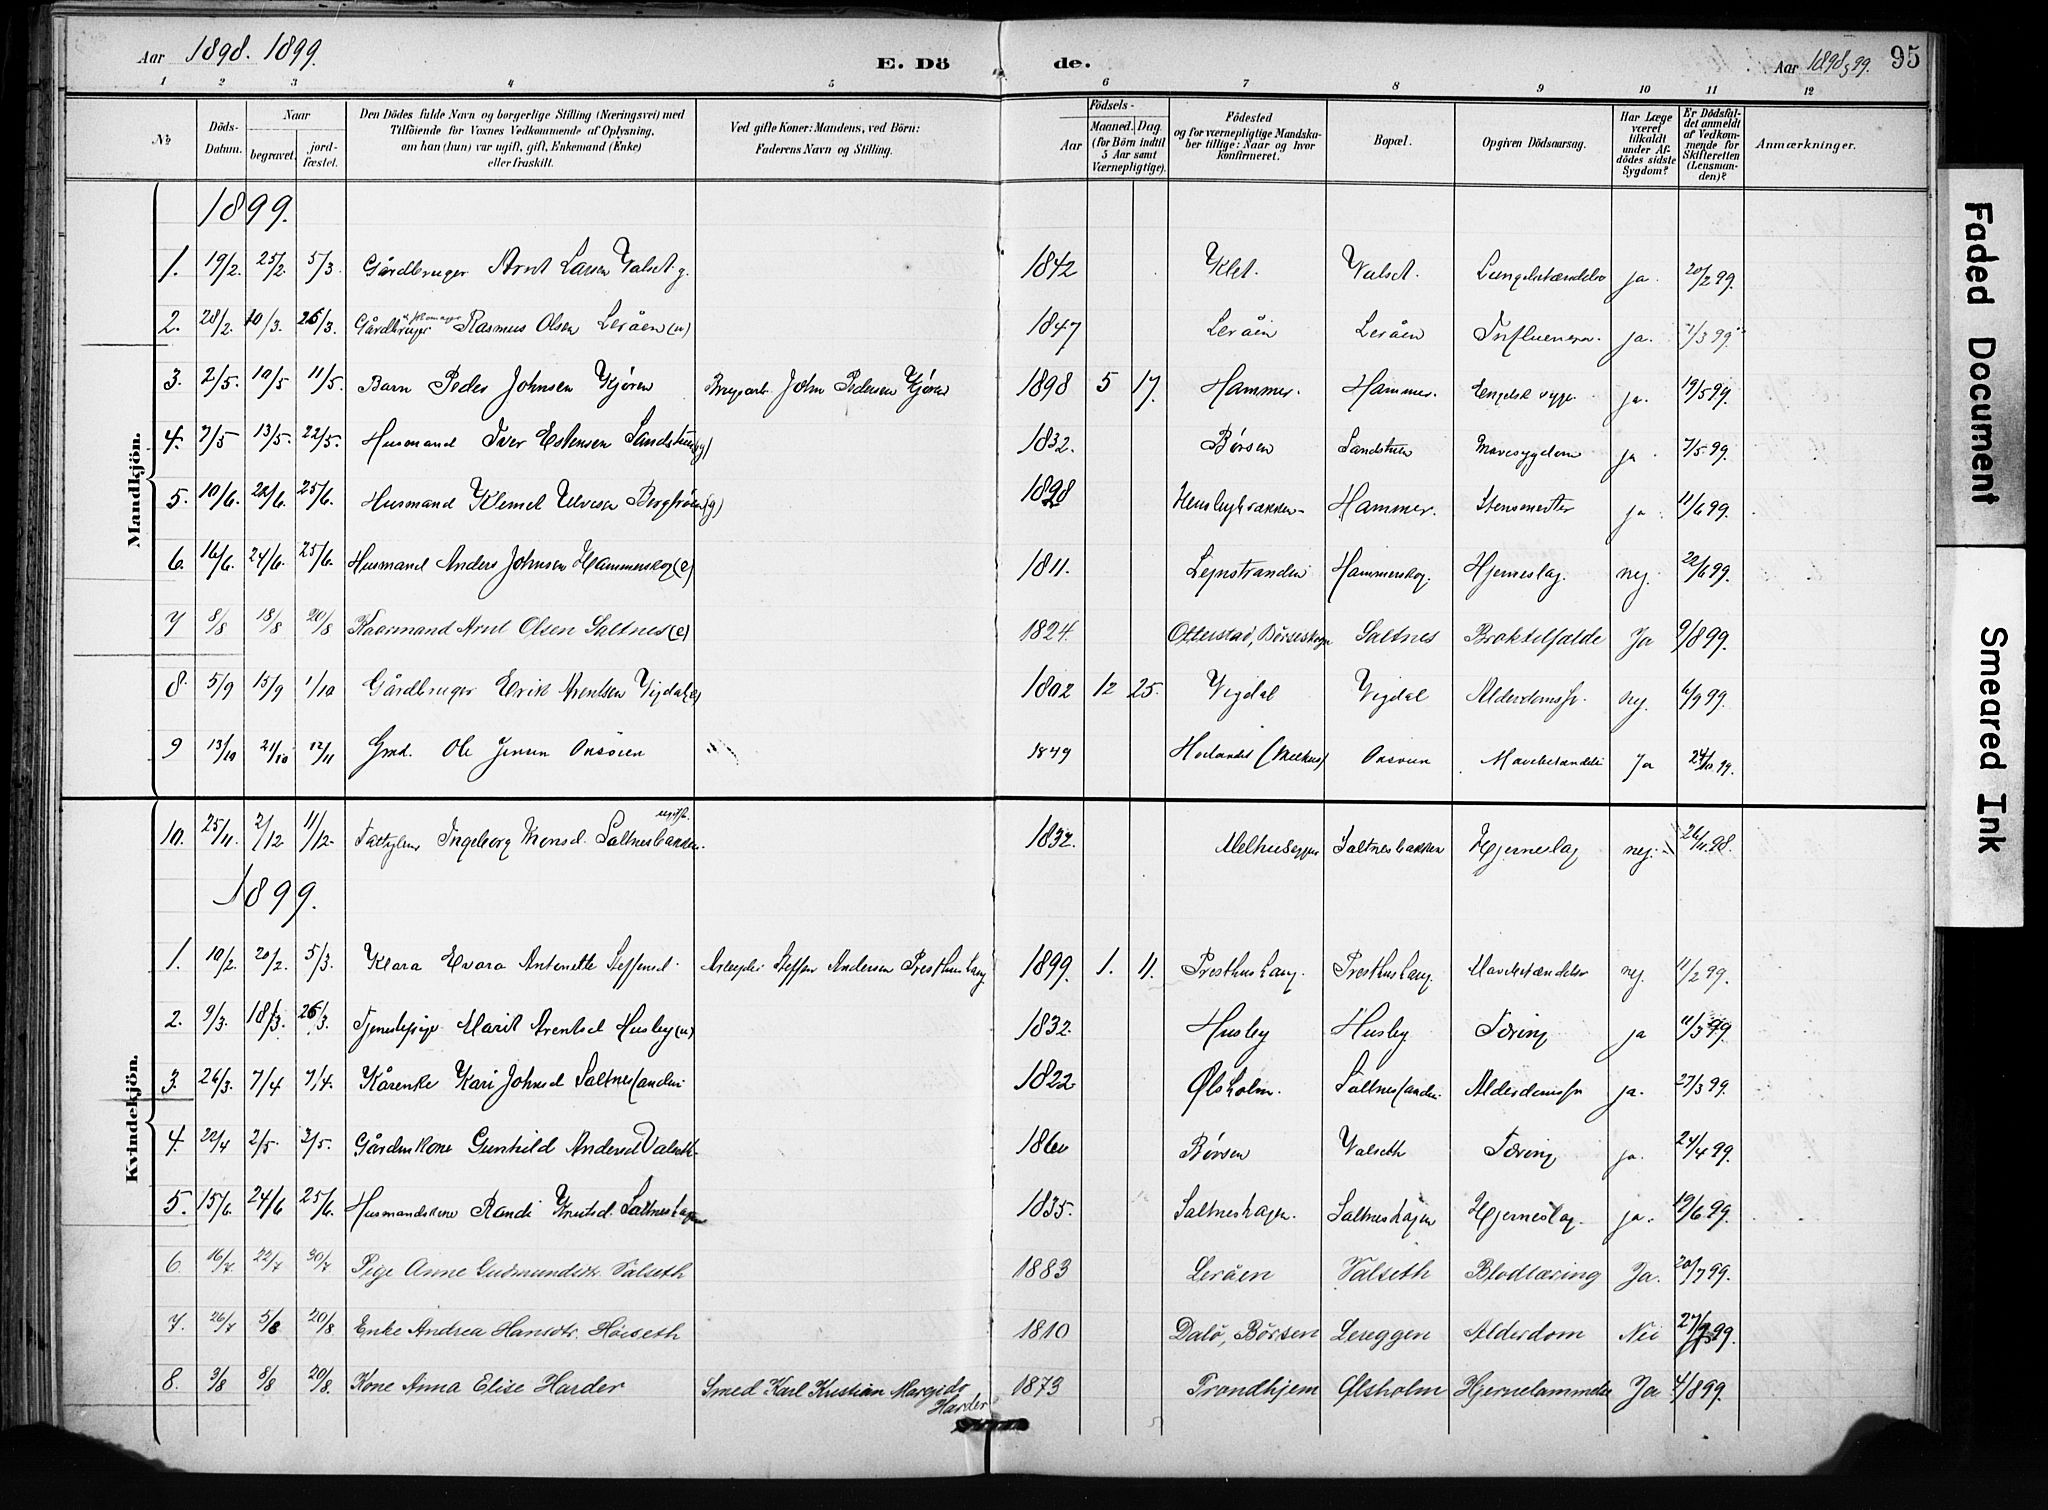 Aar 1898. 1899. E. Dö de. Aar 1898 & 99. 95
1 2 3 4 5 6 7 8 9 10 11 12
№ Döds-Datum. Naar begravet. jord-fæstet. Den Dödes fulde Navn og borgerlige Stilling (Næringsvei) med Tilföiende for Voxnes Vedkommende af Oplysning, om han (hun) var ugift, gift, Enkemand (Enke) eller fraskilt. Ved gifte Koner: Mandens, ved Börn: Faderens Navn og Stilling. Födsels- Aar Maaned. Dag. (for Börn indtil 5 Aar samt Værnepligtige). Födested og for værnepligtige Mandska-ber tillige: Naar og hvor konfirmeret. Bopæl. Opgiven Dödsaarsag. Har Læge været tilkaldt under Af-dödes sidste Sygdom? Er Dödsfal-det anmeldt af Vedkom-mende for Skifteretten (Lensman-den)? Anmærkninger.
Mandkjön.
1899.
1. 19/2. 25/2. 5/3. Gårdbruger Arnt Larsen Valset. g. 1842 Klet. Valset. Lungebetændelse ja. 20/2 99.
2. 28/2. 10/3. 26/3. Gårdbruger Rasmus Olsen Leråen (u) 1847 Leråen Leråen Influenza. ja. 1/3 99
3. 2/5. 10/5 11/5. Barn Peder Johnsen Kjøren Brugsarb. John Pedersen Kjøren 1898 5 17. Hammer. Hammer. Engelsk syge. ja. 19/5 99.
4. 7/5 13/5. 22/5. Husmand Iver Estensen Sandstuen (g) 1832. Børsen Sandstuen Mavesygdom ja 7/5 99.
5. 10/6. 22/6. 25/6. Husmand Klemet Bergtrøen (g) 1828 Hammer. Stensmerter ja. 11/6 99.
6. 16/6. 24/6. 25/6. Husmand Anders Johnsen Hammerskog (e) 1811. Lejnstranden Hammerskog. Hjerneslag. nej. 22/6 99.
7 8/8 18/8 20/8 Kaarmand Arnt Olsen Saltnes (e) 1824. Otterstad, Børseskogn Saltnes Braktilfælde Ja 9/8 99.
8. 5/9 15/9 1/10 Gårdbruger Erik Arentsen Vigdal (e) 1802 12 25. Vigdal Vigdal Alderdomssv. nej. 6/9 99.
9 13/10 21/10 12/11 Gmd. Ole Jensen Onsøien 1849 (Melhus) Onsøien Mavebetændelse Ja 24/10 99.
Kvindekjön.
10. 25/11. 2/12 11/12. Ingeborg Monsd. Saltnesbakken. ugift. 1832. Saltnesbakken Hjerneslag nej. 26/11 98.
1899.
1. 10/2. 20/2. 5/3. Klara Evora Antonette Steffensd. Arbejder Steffen Andersen Presthushaug 1899. 1. 11. Presthushaug. Presthushaug. Mavebetændelse nej. 11/2 99.
2. 9/3. 18/3. 26/3. Tjenestepige Marit Arentsd Husby (u) 1832. Husby Husby Tæring ja 11/3 99.
3. 26/3. 7/4 7/4. Kårenke Kari Johnsd Saltnessanden 1822 Ølsholm. Saltnessanden Alderdomssv ja. 27/3 99.
4. 22/4 2/5. 2/5. Gårdmkone Gunhild Andersd Valseth. 1860 Børsen Valseth Tæring ja. 24/4 99.
5. 15/6. 24/6 25/6. Husmandskone Randi Knutsd. Saltneshagen 1835. Saltneshagen. Saltneshagen Hjerneslag. ja. 19/6 99.
6. 16/7. 22/7 30/7 Pige Anne Gudmundsdtr. Valseth 1883 Leråen Valseth Blodtæring Ja. 20/7 99.
7. 26/7 5/8 20/8 Enke Andrea Hansdtr. Høiseth 1810 Dalø, Børsen Lereggen Alderdom Nei 27/7 99.
8. 3/8 8/8 20/8. Kone Anna Elise Harder Smed Karl Kristian Margido Harder 1873 Trondhjem Ølsholm Hjernelammelse Ja 4/8 99.
Faded Document
Smeared Ink